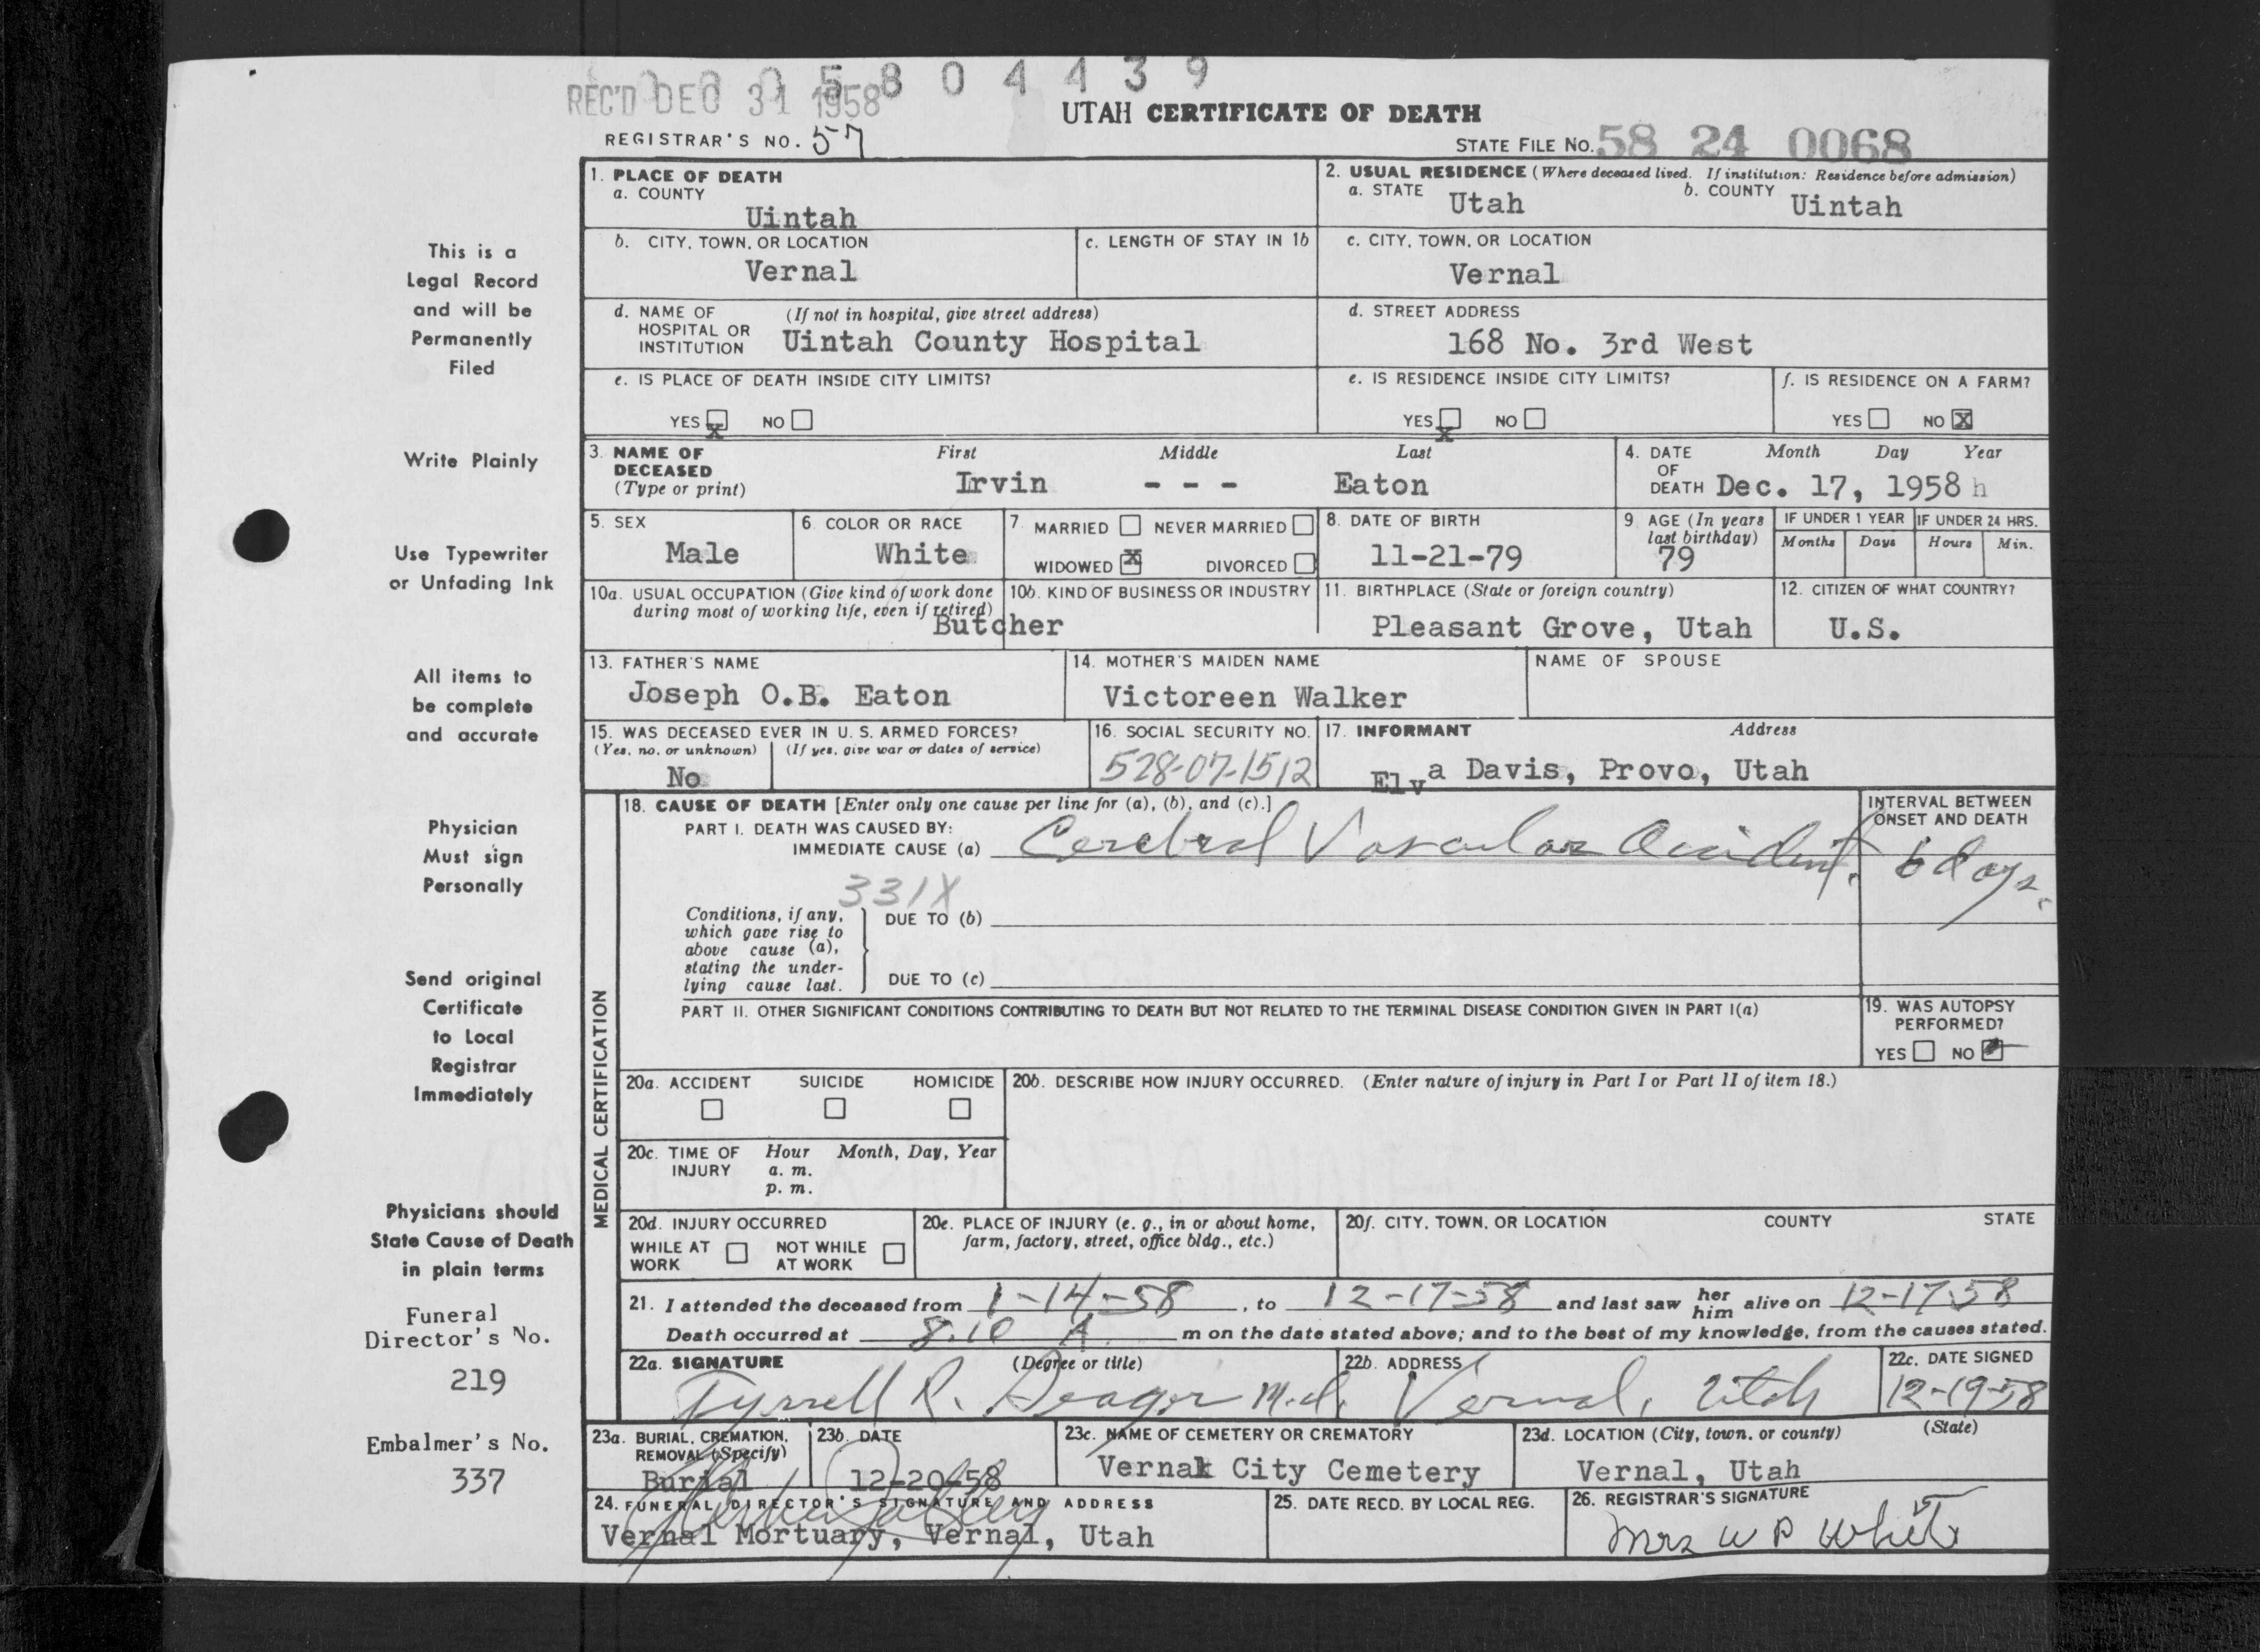 0 0 5 8 0 4 4 3 9
REC'D DEC 31 1958
UTAH CERTIFICATE OF DEATH
REGISTRAR'S NO. 57
STATE FILE NO. 58 24 0068
1. PLACE OF DEATH
a. COUNTY
Uintah
2. USUAL RESIDENCE (Where deceased lived. If institution: Residence before admission)
a. STATE Utah b. COUNTY Uintah
b. CITY, TOWN, OR LOCATION
Vernal
c. LENGTH OF STAY IN 1b
c. CITY, TOWN, OR LOCATION
Vernal
d. NAME OF HOSPITAL OR INSTITUTION (If not in hospital, give street address)
Uintah County Hospital
d. STREET ADDRESS
168 No. 3rd West
e. IS PLACE OF DEATH INSIDE CITY LIMITS?
YES X NO
e. IS RESIDENCE INSIDE CITY LIMITS?
YES X NO
f. IS RESIDENCE ON A FARM?
YES NO X
3. NAME OF DECEASED (Type or print)
First Middle Last
Irvin - - - Eaton
4. DATE OF DEATH Month Day Year
Dec. 17, 1958 h
5. SEX
Male
6. COLOR OR RACE
White
7. MARRIED NEVER MARRIED
WIDOWED X DIVORCED
8. DATE OF BIRTH
11-21-79
9. AGE (In years last birthday)
79
IF UNDER 1 YEAR
Months Days
IF UNDER 24 HRS.
Hours Min.
10a. USUAL OCCUPATION (Give kind of work done during most of working life, even if retired)
Butcher
10b. KIND OF BUSINESS OR INDUSTRY
11. BIRTHPLACE (State or foreign country)
Pleasant Grove, Utah
12. CITIZEN OF WHAT COUNTRY?
U.S.
13. FATHER'S NAME
Joseph O.B. Eaton
14. MOTHER'S MAIDEN NAME
Victoreen Walker
NAME OF SPOUSE
15. WAS DECEASED EVER IN U. S. ARMED FORCES?
(Yes, no, or unknown) (If yes, give war or dates of service)
No
16. SOCIAL SECURITY NO.
528-07-1512
17. INFORMANT Address
Elva Davis, Provo, Utah
MEDICAL CERTIFICATION
18. CAUSE OF DEATH [Enter only one cause per line for (a), (b), and (c).]
PART I. DEATH WAS CAUSED BY:
IMMEDIATE CAUSE (a) Cerebral Vascular Accident.
INTERVAL BETWEEN ONSET AND DEATH
6 days.
331X
Conditions, if any, which gave rise to above cause (a), stating the underlying cause last.
DUE TO (b)
DUE TO (c)
PART II. OTHER SIGNIFICANT CONDITIONS CONTRIBUTING TO DEATH BUT NOT RELATED TO THE TERMINAL DISEASE CONDITION GIVEN IN PART I(a)
19. WAS AUTOPSY PERFORMED?
YES NO
20a. ACCIDENT SUICIDE HOMICIDE
20b. DESCRIBE HOW INJURY OCCURRED. (Enter nature of injury in Part I or Part II of item 18.)
20c. TIME OF INJURY Hour Month, Day, Year
a. m.
p. m.
20d. INJURY OCCURRED
WHILE AT WORK NOT WHILE AT WORK
20e. PLACE OF INJURY (e. g., in or about home, farm, factory, street, office bldg., etc.)
20f. CITY, TOWN, OR LOCATION COUNTY STATE
21. I attended the deceased from 1-14-58, to 12-17-58 and last saw her him alive on 12-17-58
Death occurred at 8:10 A m on the date stated above; and to the best of my knowledge, from the causes stated.
22a. SIGNATURE (Degree or title)
Tyrrell R. Seager M.d.
22b. ADDRESS
Vernal, Utah
22c. DATE SIGNED
12-19-58
23a. BURIAL, CREMATION, REMOVAL (Specify)
Burial
23b. DATE
12-20-58
23c. NAME OF CEMETERY OR CREMATORY
Vernal City Cemetery
23d. LOCATION (City, town, or county) (State)
Vernal, Utah
24. FUNERAL DIRECTOR'S SIGNATURE AND ADDRESS
Vernal Mortuary, Vernal, Utah
25. DATE RECD. BY LOCAL REG.
26. REGISTRAR'S SIGNATURE
Mrs W P White
This is a
Legal Record
and will be
Permanently
Filed
Write Plainly
Use Typewriter
or Unfading Ink
All items to
be complete
and accurate
Physician
Must sign
Personally
Send original
Certificate
to Local
Registrar
Immediately
Physicians should
State Cause of Death
in plain terms
Funeral
Director's No.
219
Embalmer's No.
337